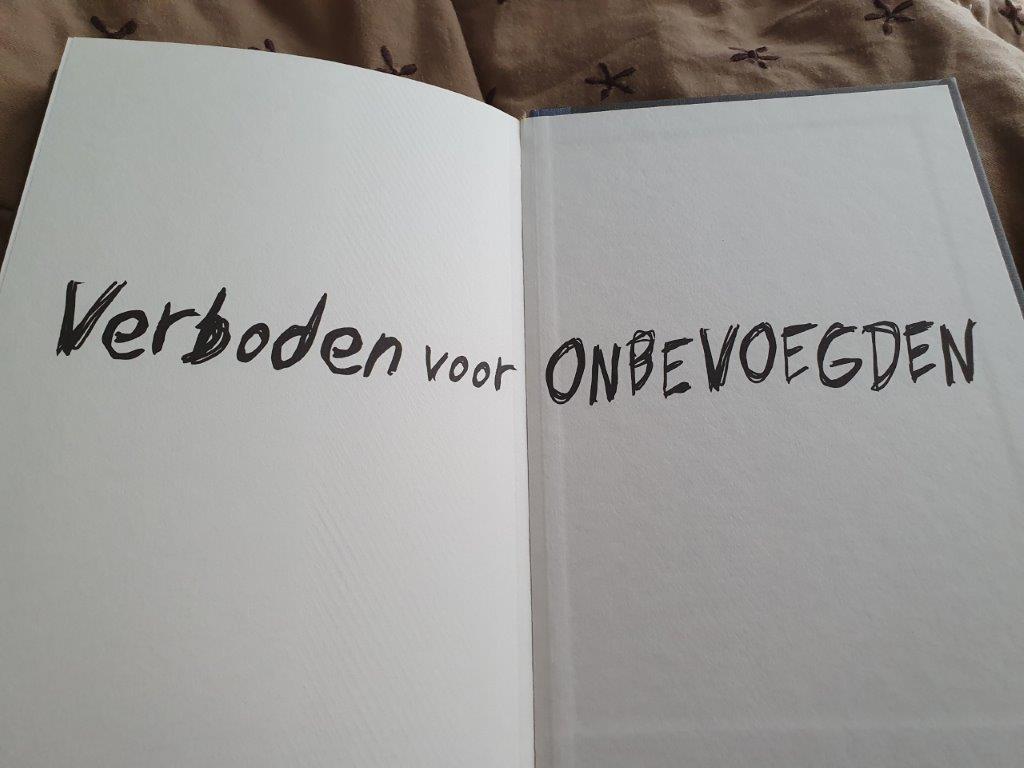 Verboden voor ONBEVOEGDEN